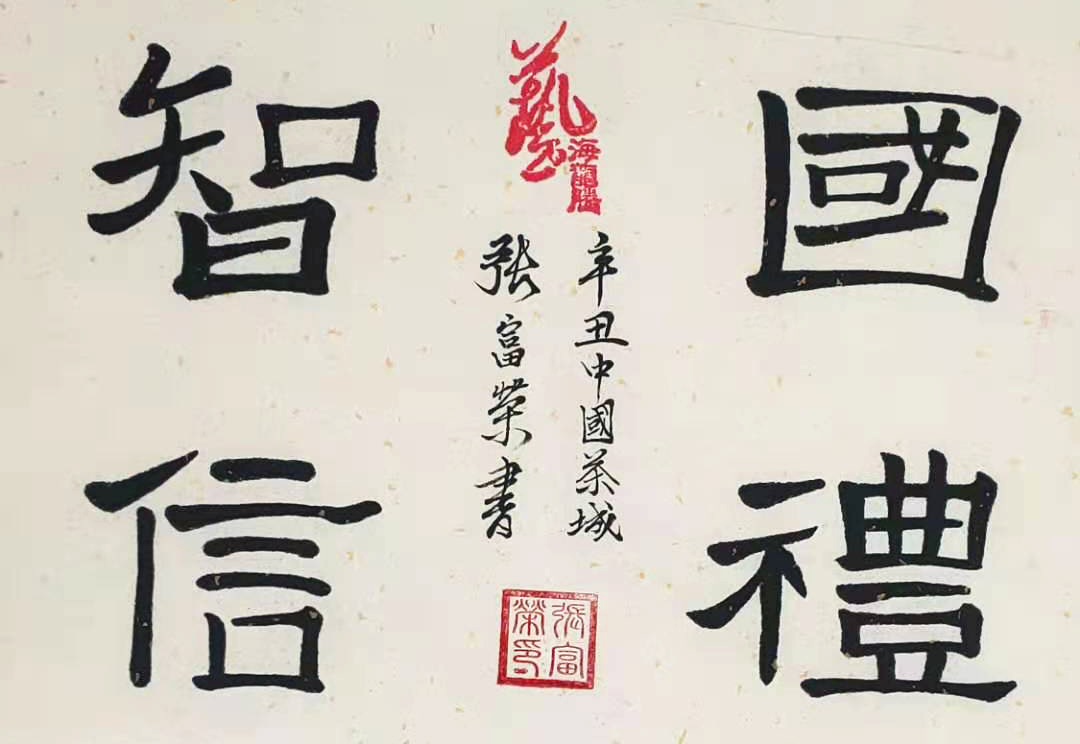 國禮
藝
海
辛丑中國茶城
張富榮書
張富
榮印
智信